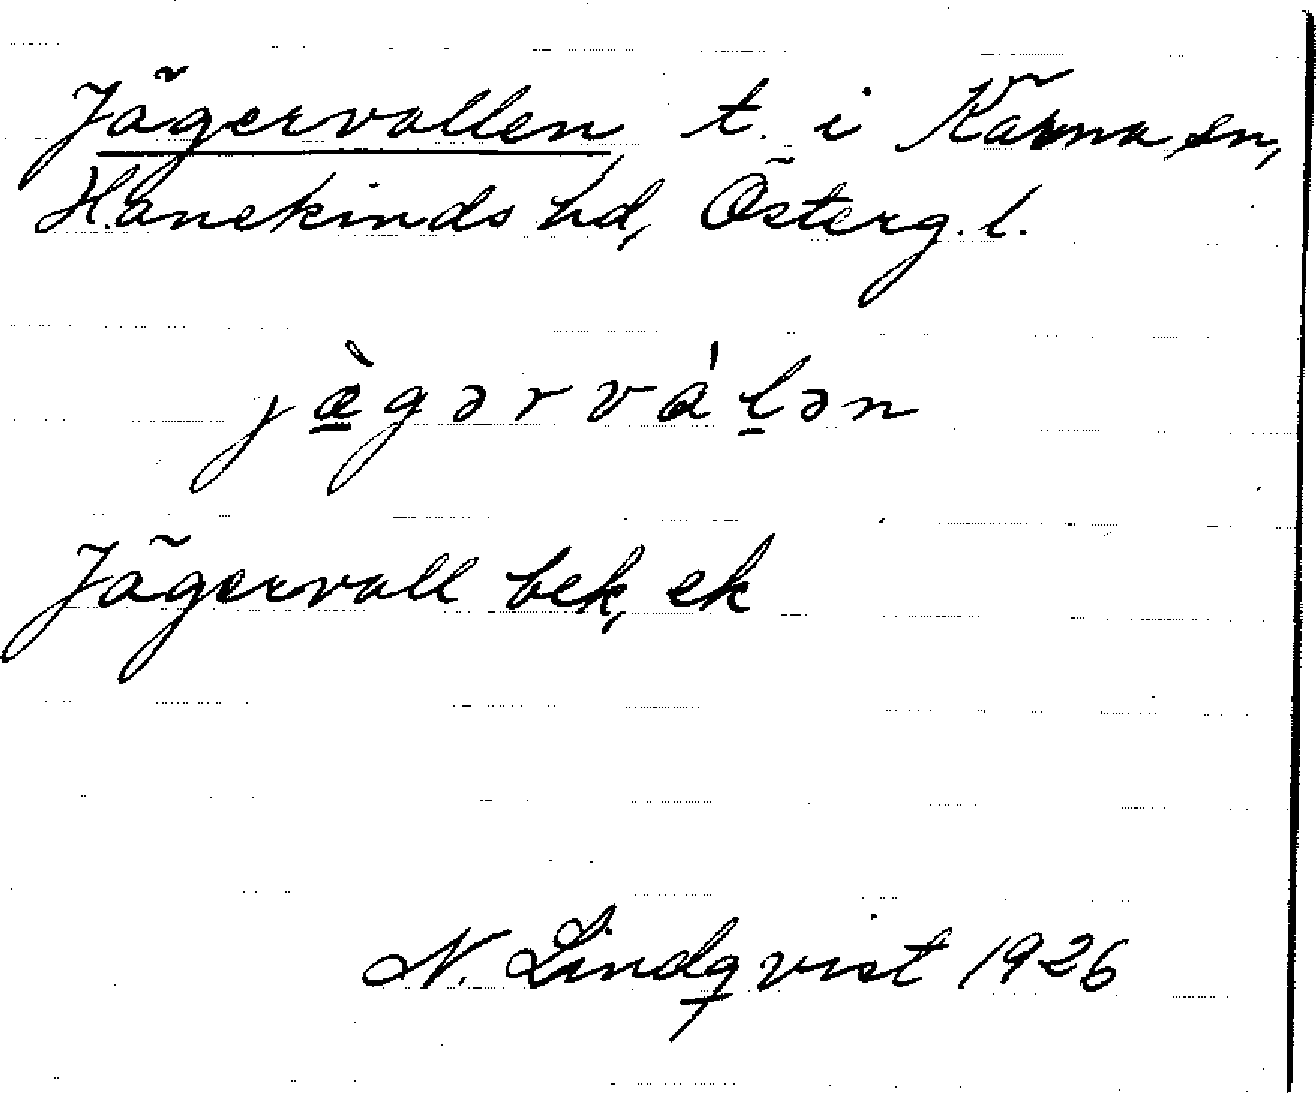 Jägervallen, t. i Kärna sn,
Hanekinds hd, Österg. l.
jæ̠̀gərvál̠ən
Jägervall bek, ek
N. Lindqvist 1926